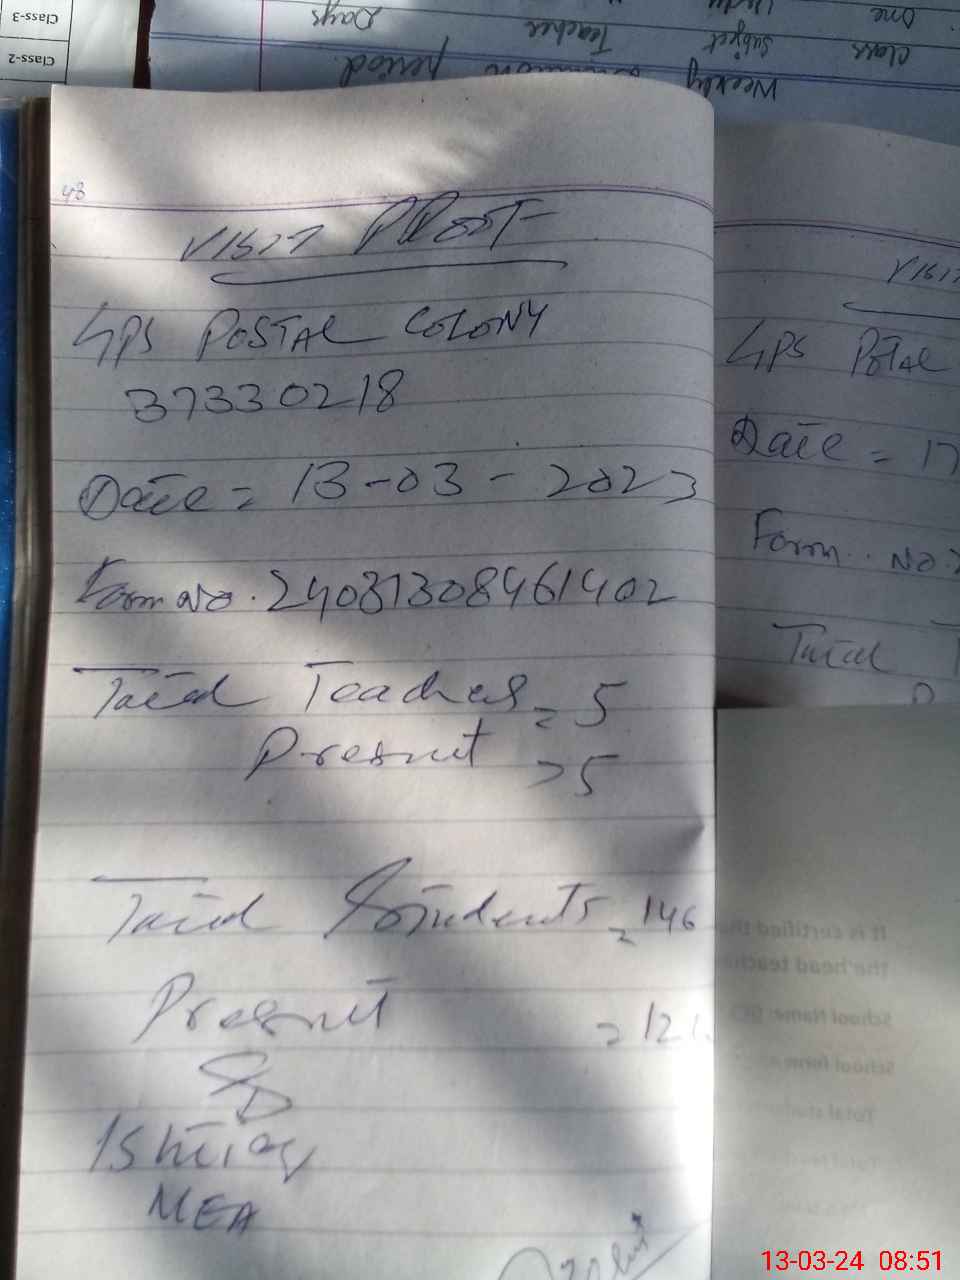 Class-3
Class-2
One
Urdu
Class
Subject
Teacher
Days
Weekly
period
48
VISIT PROOF
GPS POSTAL COLONY
37330218
Date = 13-03-2023
Form No. 24031308461402
Total Teaches = 5
Present = 5
Total Students = 146
Present = 121
Ishtiaq
MEA
VISIT
GPS POTAL
Date = 17
Form. No.
Total T
It is certified tha
the head teache
School Name: G
School
Total stud
13-03-24 08:51